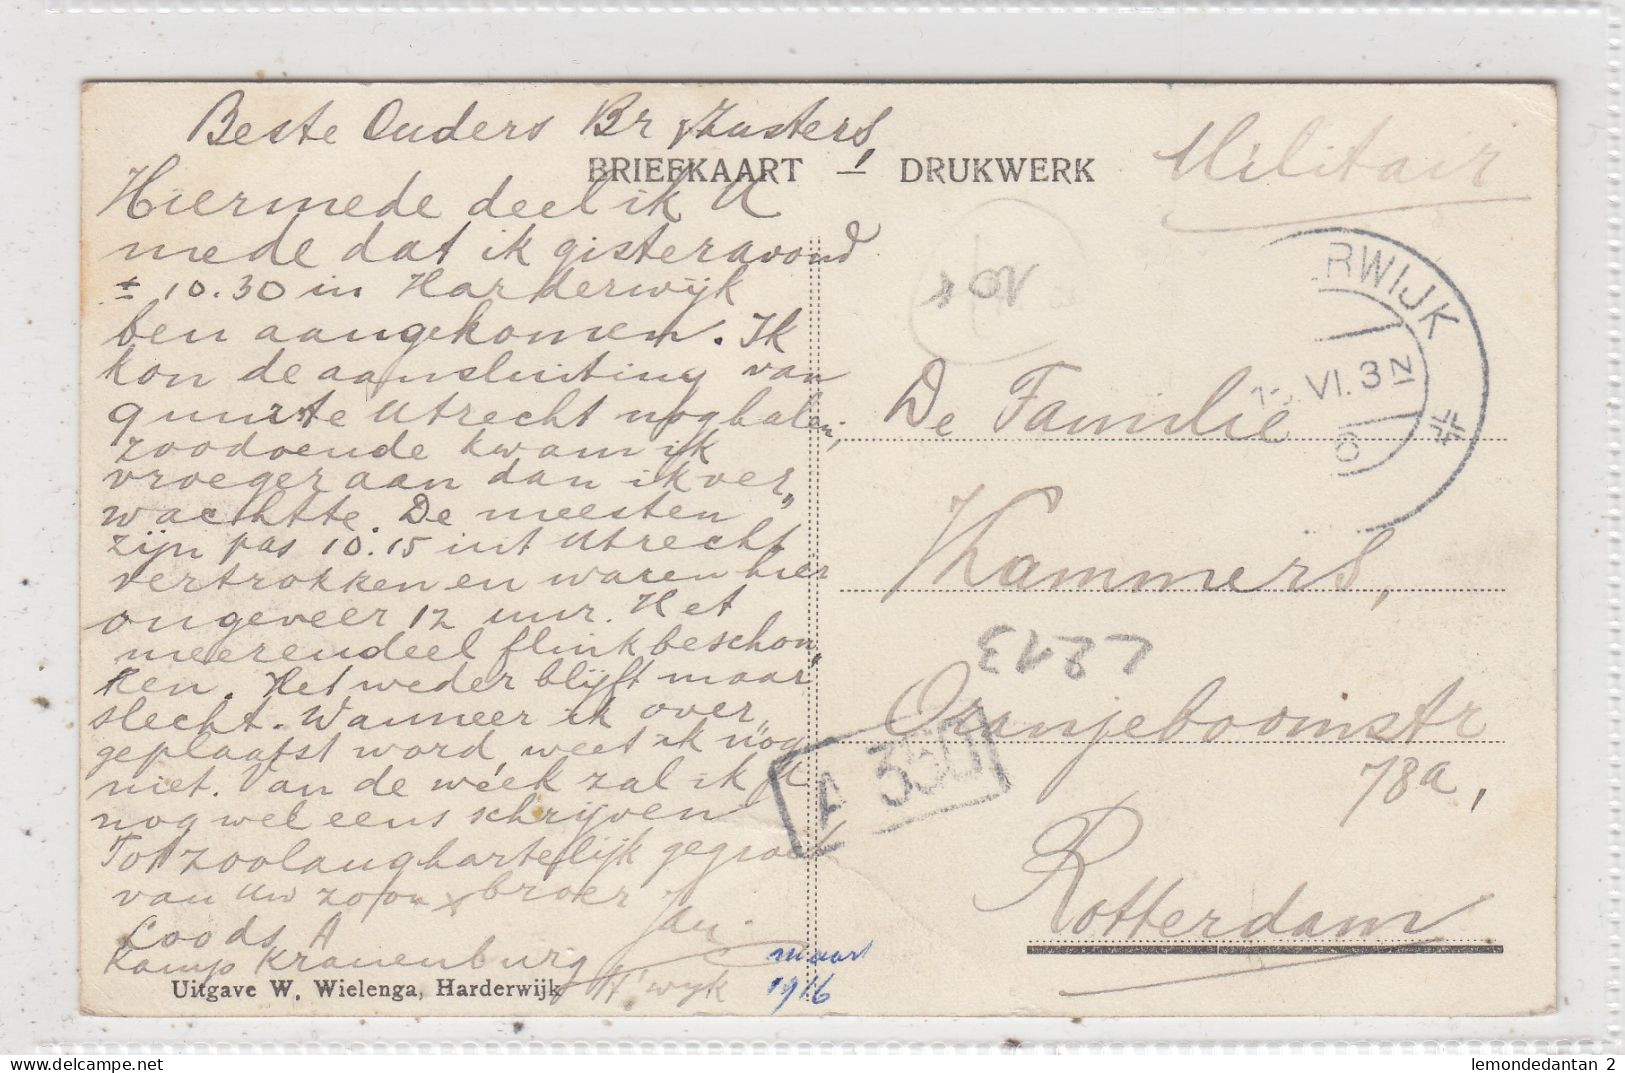 Beste Ouders Br & Zusters,
BRIEFKAART — DRUKWERK
Militair
Hiermede deel ik U
mede dat ik gisteravond
± 10.30 in Harderwijk
ben aangekomen. Ik
kon de aansluiting van
quurte Utrecht nog halen,
zoodoende kwam ik
vroeger aan dan ik ver„
wachtte. De meesten
zijn pas 10.15 uit Utrecht
vertrokken en waren hier
ongeveer 12 uur. Het
meerendeel flink beschon„
ken. Het weder blijft maar
slecht. Wanneer ik over„
geplaatst word, weet ik nog
niet. Van de week zal ik U
nog wel eens schrijven
Tot zoolang hartelijk gegroet
van uw zoon & broer
Jan.
Loods A
Kamp Kranenburg
H'wyk
Uitgave W. Wielenga, Harderwijk
maart
1916
RWIJK
VI. 3 N
6
De Familie
Kammers,
Oranjeboomstr
78a,
Rotterdam
A 350